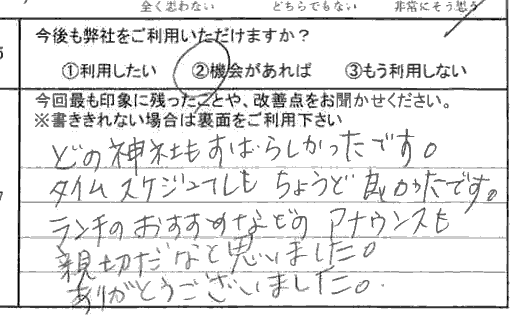 全く思わない どちらでもない 非常にそう思う
5
今後も弊社をご利用いただけますか？
①利用したい ②機会があれば ③もう利用しない
今回最も印象に残ったことや、改善点をお聞かせください。
※書ききれない場合は裏面をご利用下さい
7
どの神社もすばらしかったです。
タイムスケジュールもちょうど良かったです。
ランチのおすすめなどのアナウンスも
親切だなと思いました。
ありがとうございました。